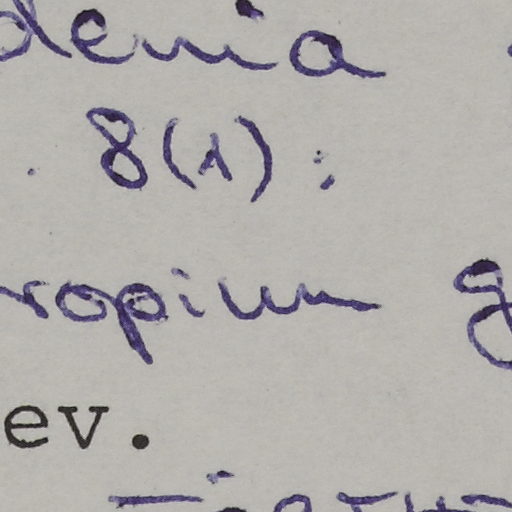 denia
. 8(1):
ropium g
ev.